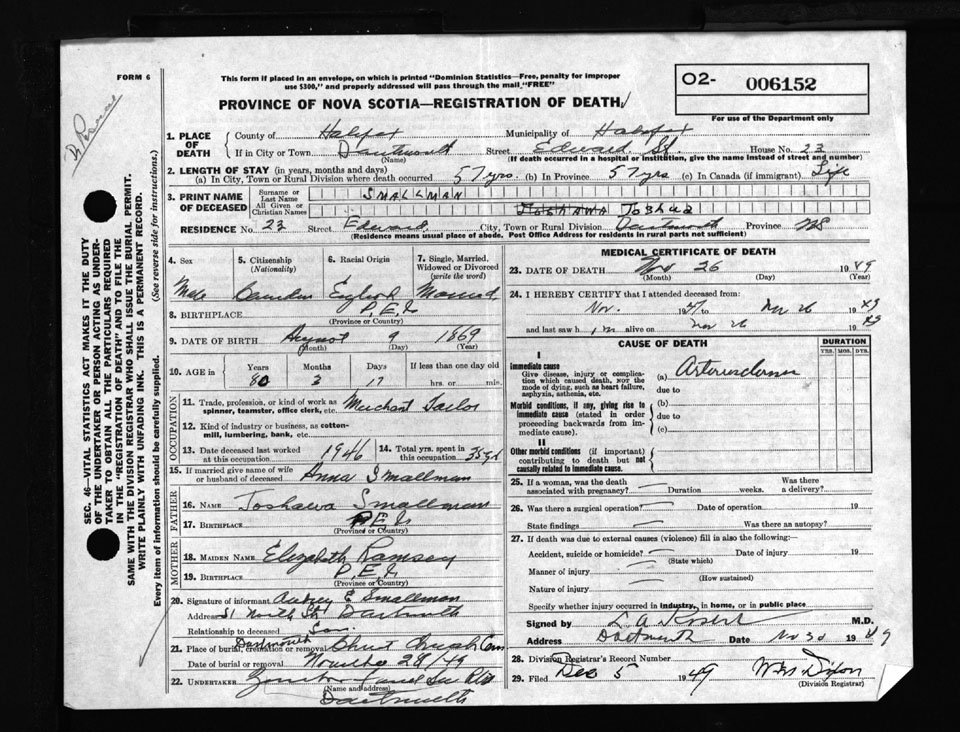 FORM 6
This form if placed in an envelope, on which is printed "Dominion Statistics—Free, penalty for improper
use $300," and properly addressed will pass through the mail "FREE"
O2- 006152
For use of the Department only
PROVINCE OF NOVA SCOTIA—REGISTRATION OF DEATH
1. PLACE OF DEATH
County of Halifax Municipality of Halifax
If in City or Town Dartmouth Street Edward St. House No. 23
(Name) (If death occurred in a hospital or institution, give the name instead of street and number)
2. LENGTH OF STAY (in years, months and days)
(a) In City, Town or Rural Division where death occurred 57 yrs. (b) In Province 57 yrs (c) In Canada (if immigrant) Life
3. PRINT NAME OF DECEASED
Surname or Last Name SMALLMAN
All Given or Christian Names JOSHAWA Joshua
RESIDENCE No. 23 Street Edward City, Town or Rural Division Dartmouth Province NS
(Residence means usual place of abode. Post Office Address for residents in rural parts not sufficient)
4. Sex
Male
5. Citizenship
(Nationality)
Canadian
6. Racial Origin
English
7. Single, Married, Widowed or Divorced
(write the word)
Married
8. BIRTHPLACE P.E.I.
(Province or Country)
9. DATE OF BIRTH August 9 1869
(Month) (Day) (Year)
10. AGE in
Years Months Days If less than one day old
80 3 17 hrs. or min.
OCCUPATION
11. Trade, profession, or kind of work as
spinner, teamster, office clerk, etc. Merchant Tailor
12. Kind of industry or business, as cotton-
mill, lumbering, bank, etc.
13. Date deceased last worked
at this occupation 1946
14. Total yrs. spent in
this occupation
15. If married give name of wife
or husband of deceased Anna Smallman
FATHER
16. NAME Joshawa Smallman
17. BIRTHPLACE PEI
(Province or Country)
MOTHER
18. MAIDEN NAME Elizabeth Ramsey
19. BIRTHPLACE P.E.I.
(Province or Country)
20. Signature of informant Aubrey E Smallman
Address 51 North St Dartmouth
Relationship to deceased Son.
21. Place of burial, cremation or removal Dartmouth Christ Church Cem
Date of burial or removal November 28/49
22. UNDERTAKER
(Name and address)
Dartmouth
MEDICAL CERTIFICATE OF DEATH
23. DATE OF DEATH Nov 26 1949
(Month) (Day) (Year)
24. I HEREBY CERTIFY that I attended deceased from:
Nov. 1947 to Nov 26 1949
and last saw him alive on Nov 26 1949
CAUSE OF DEATH
DURATION
YRS. MOS. DYS.
I
Immediate cause
Give disease, injury or complica-
tion which caused death, not the
mode of dying, such as heart failure,
asphyxia, asthenia, etc.
(a) Arteriosclerosis
due to
Morbid conditions, if any, giving rise to
immediate cause (stated in order
proceeding backwards from im-
mediate cause).
(b)
due to
(c)
II
Other morbid conditions (if important)
contributing to death but not
causally related to immediate cause.
25. If a woman, was the death
associated with pregnancy? Duration weeks. Was there a delivery?
26. Was there a surgical operation? Date of operation 19
State findings Was there an autopsy?
27. If death was due to external causes (violence) fill in also the following:—
Accident, suicide or homicide? Date of injury 19
(State which)
Manner of injury
(How sustained)
Nature of injury
Specify whether injury occurred in industry, in home, or in public place
Signed by M.D.
Address Dartmouth Date Nov 30 1949
28. Division Registrar's Record Number
29. Filed Dec 5 1949
(Division Registrar)
SEC. 46—VITAL STATISTICS ACT MAKES IT THE DUTY
OF THE UNDERTAKER OR PERSON ACTING AS UNDER-
TAKER TO OBTAIN ALL THE PARTICULARS REQUIRED
IN THE "REGISTRATION OF DEATH" AND TO FILE THE
SAME WITH THE DIVISION REGISTRAR WHO SHALL ISSUE THE BURIAL PERMIT.
WRITE PLAINLY WITH UNFADING INK. THIS IS A PERMANENT RECORD.
Every item of information should be carefully supplied. (See reverse side for instructions.)